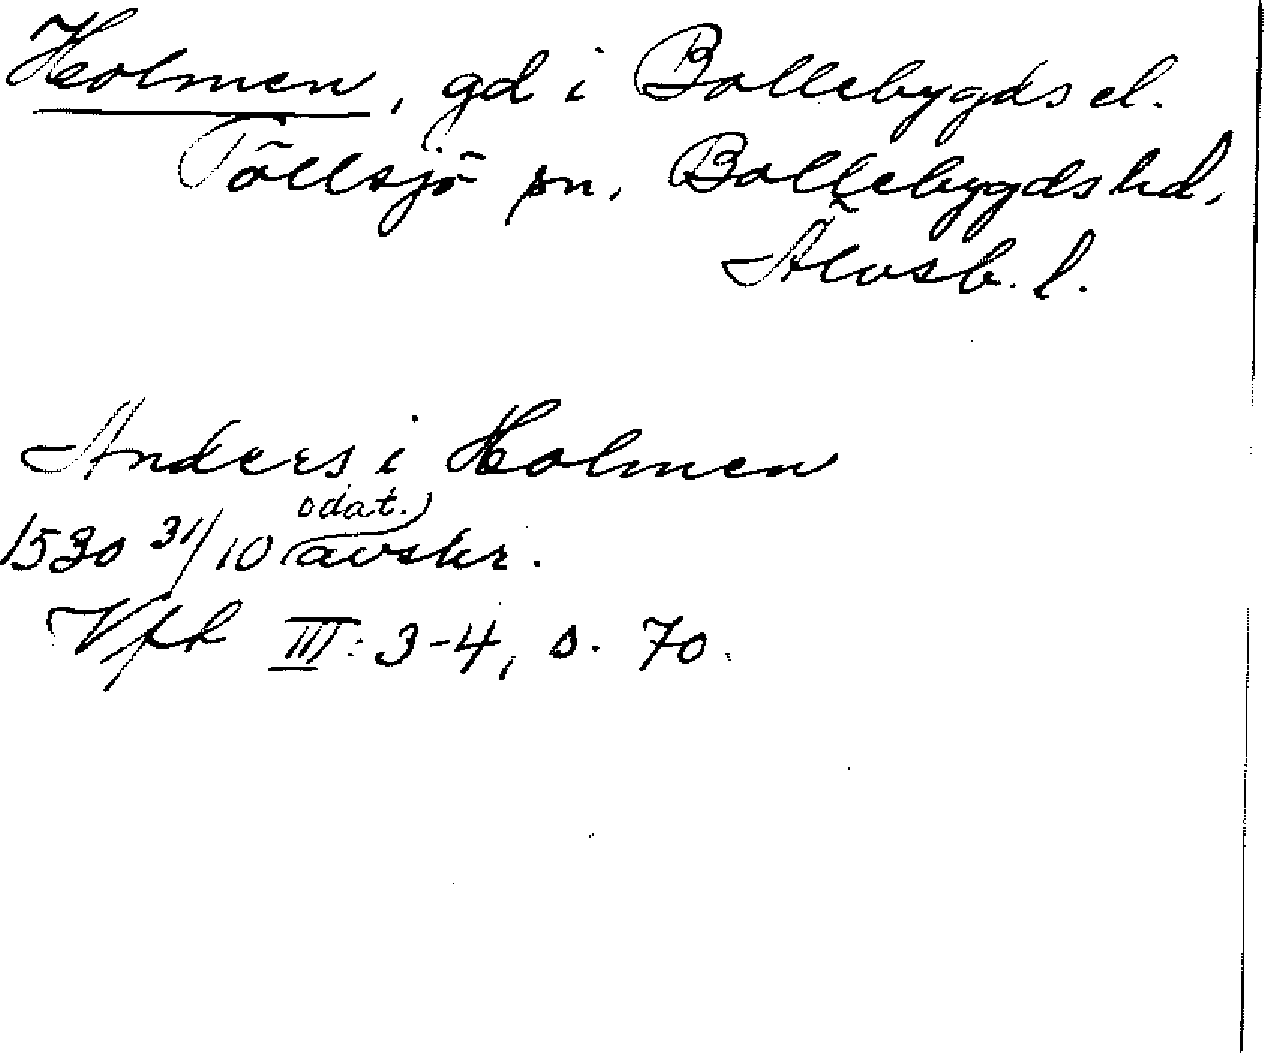 Holmen, gd i Bollebygds el.
Töllsjö sn, Bollebygds hd,
Älvsb. l.
Anders i Holmen
odat.)
1530 31/10 (avskr.
Vfk III: 3-4, s. 70.